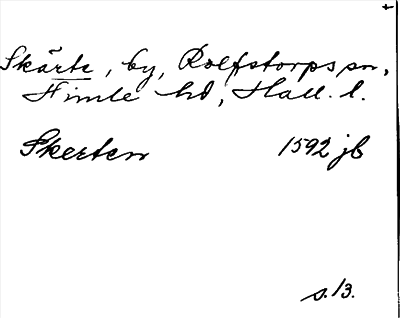 Skärte, by, Rolfstorps sn,
Himle hd, Hall. l.
Skerten 1592 jb
s. 13.